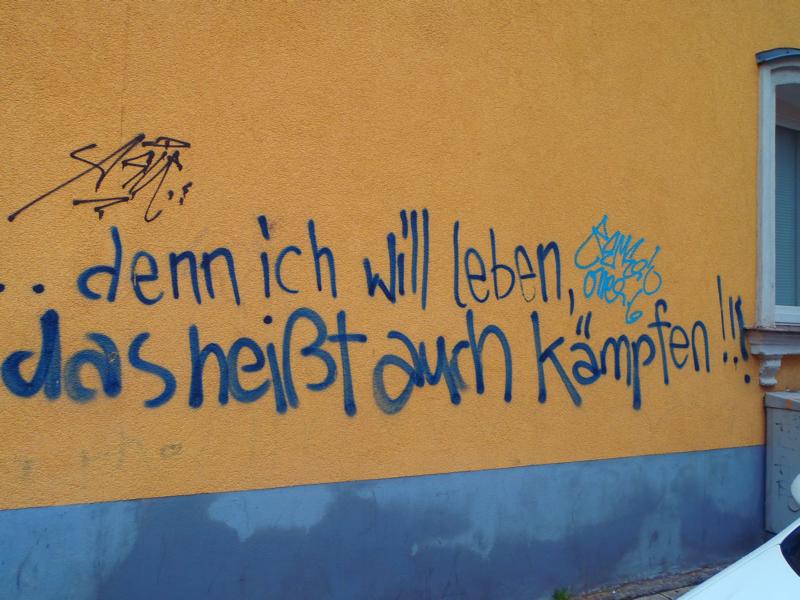 .. denn ich will leben,
das heißt auch kämpfen!!!